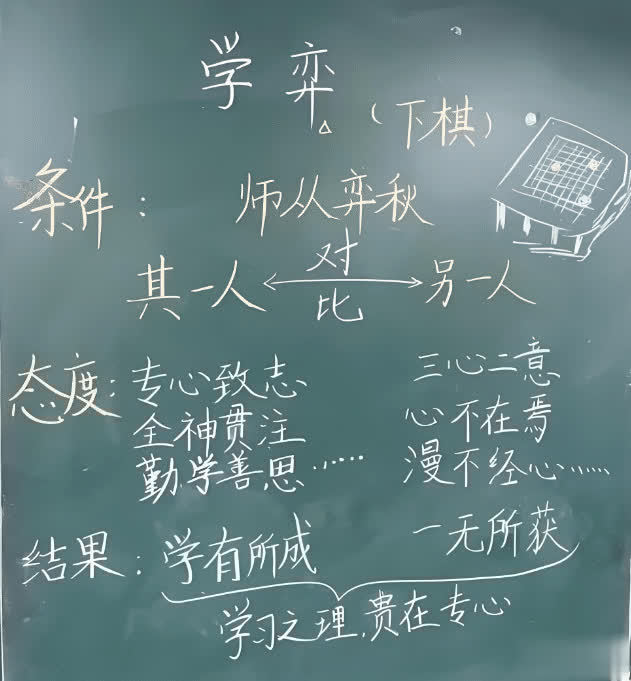 学弈
（下棋）
条件： 师从弈秋
其一人 对比 另一人
态度：专心致志 三心二意
全神贯注 心不在焉
勤学善思…… 漫不经心……
结果：学有所成 一无所获
学习之理，贵在专心